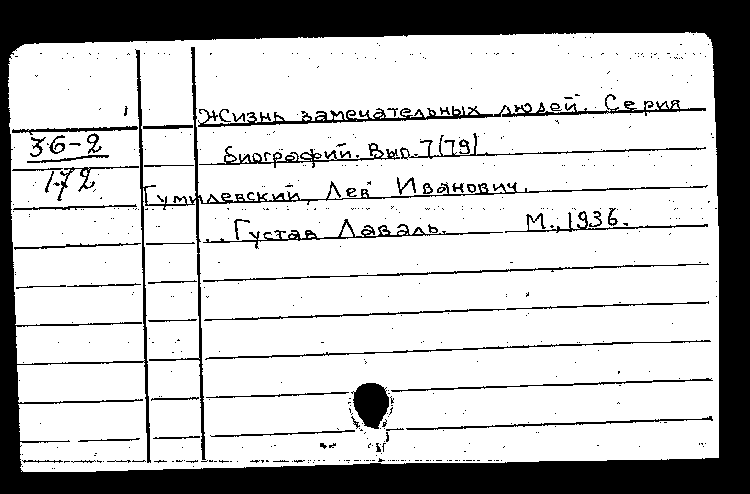 Жизнь замечательных людей. Серия
36-2
биографий. Вып. 7(79).
172
Гумилевский, Лев Иванович.
... Густав Лаваль. М., 1936.